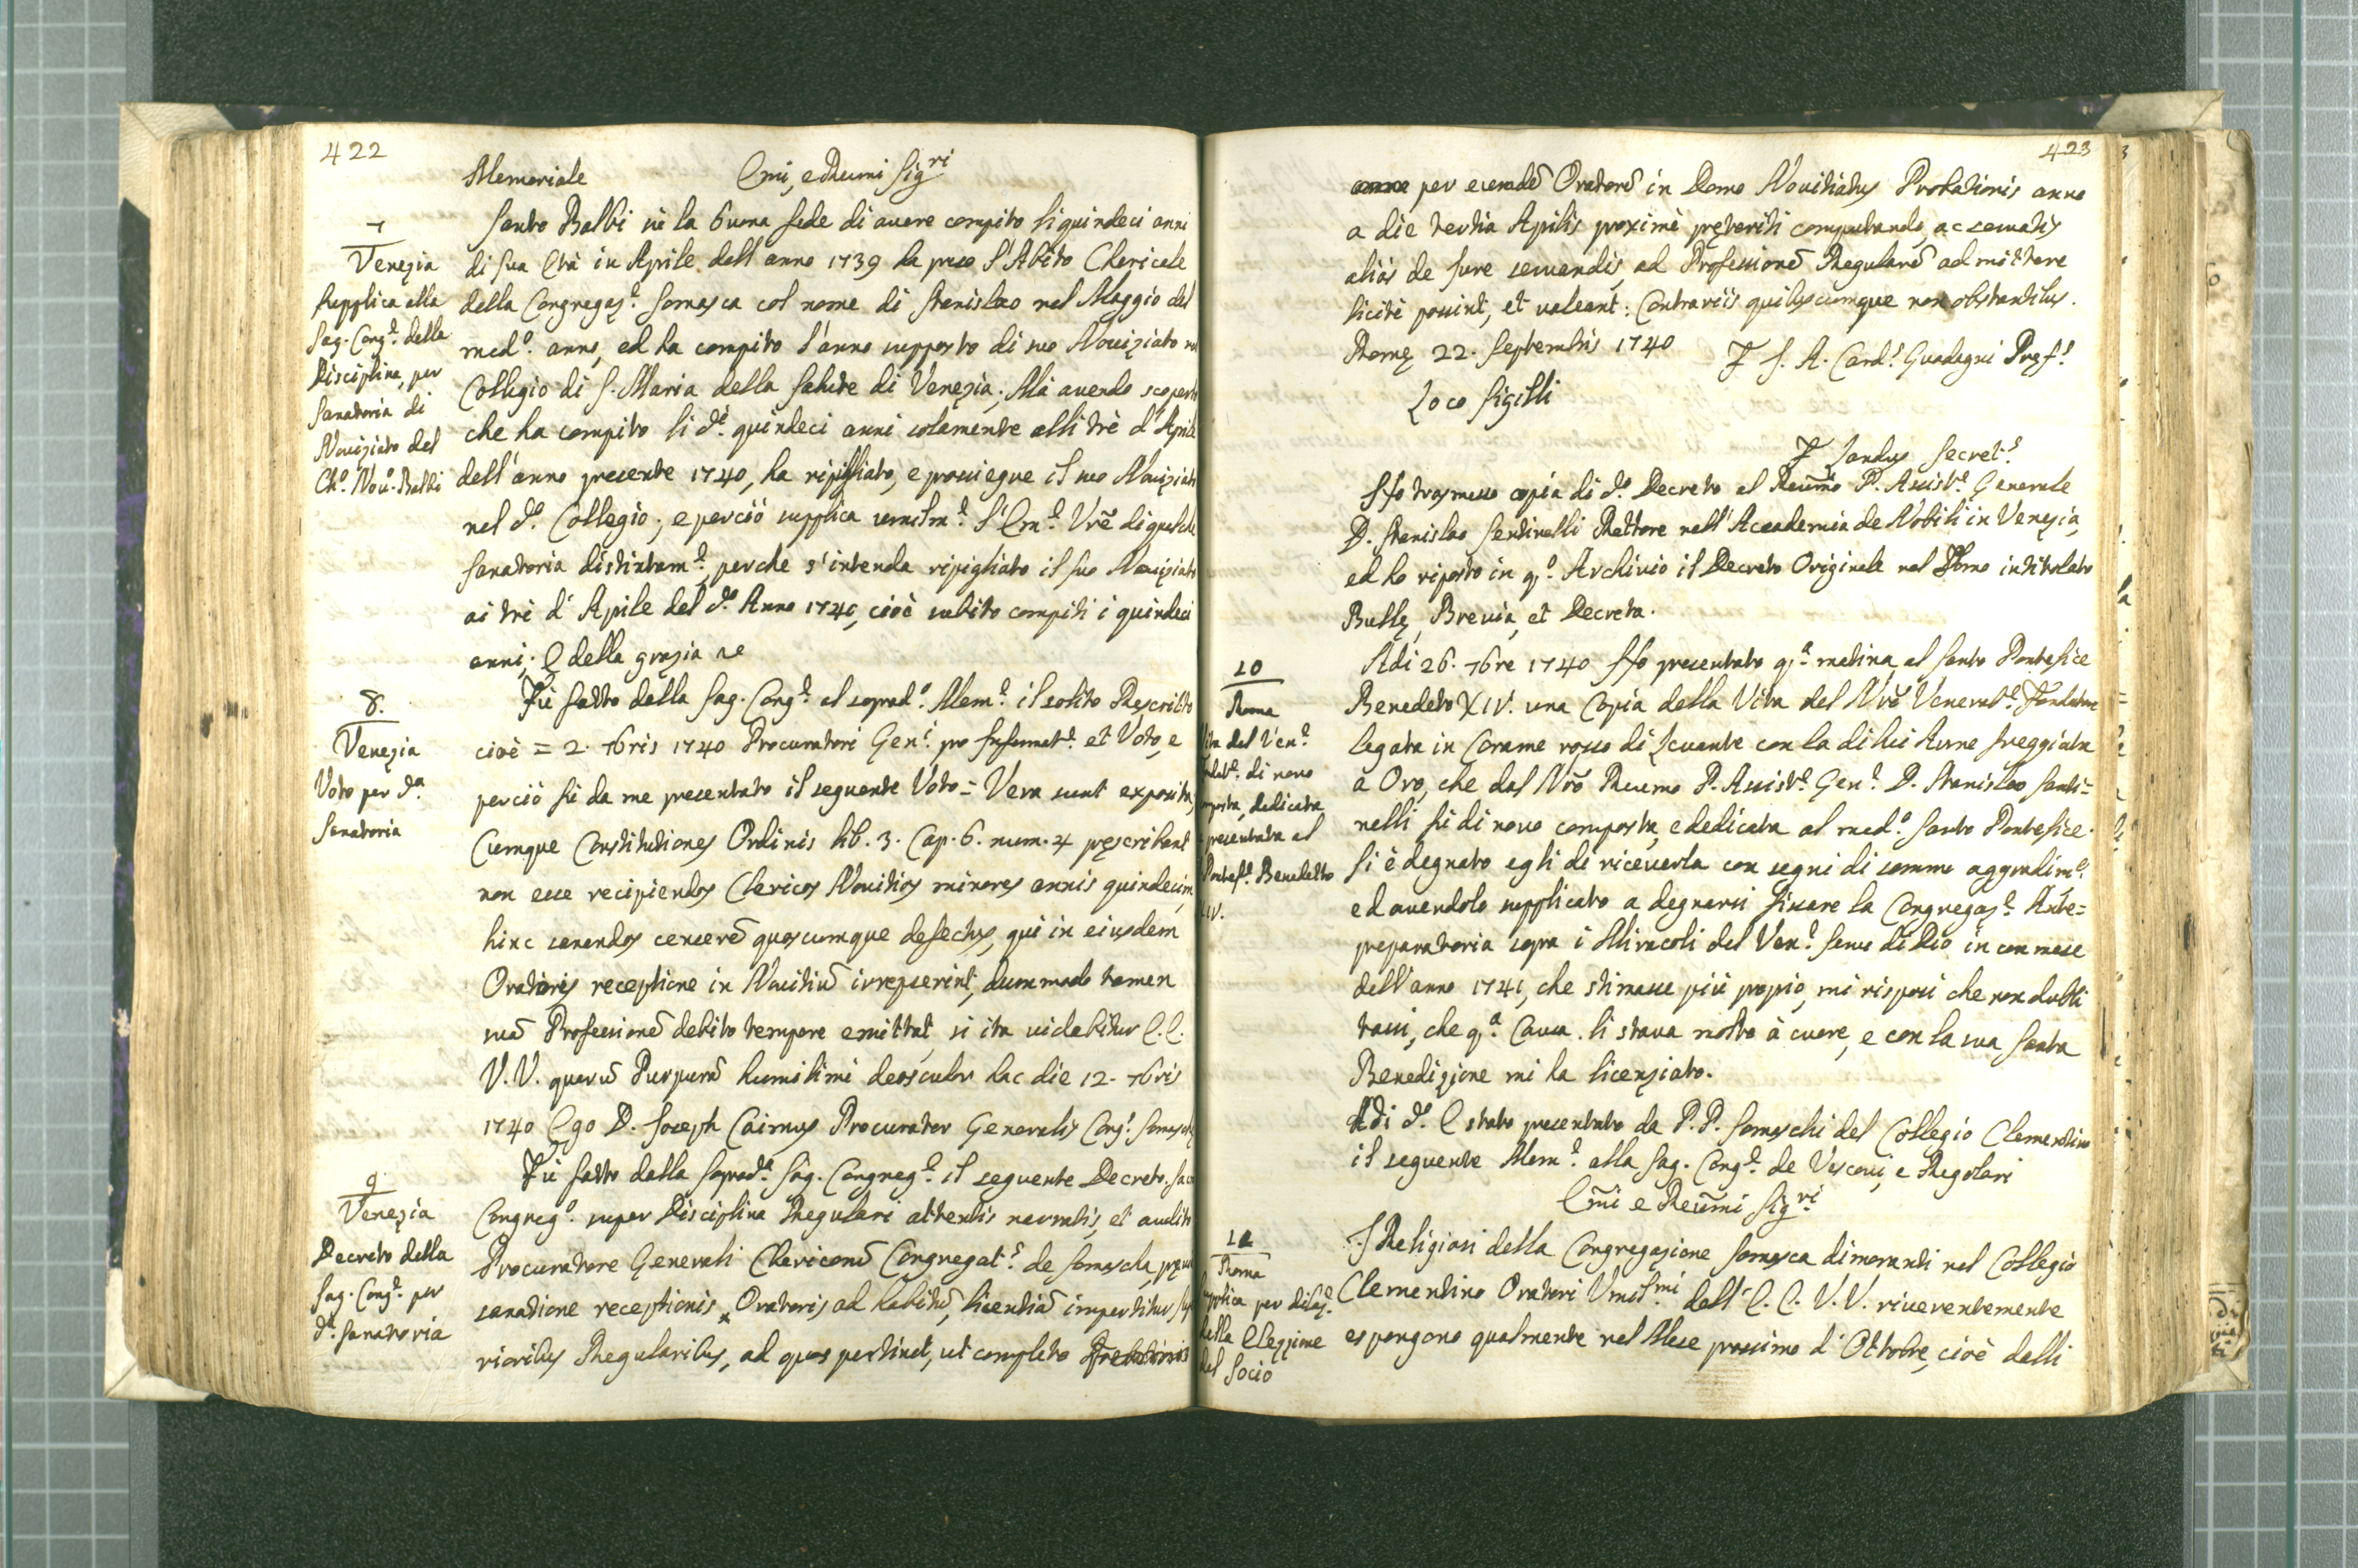 422
Memoriale Emi, e Reumi Sig.ri
7
Venezia
Supplica alla
Sag. Cong.e della
Disciplina, per
Sanatoria di
Noviziato del
Ch.o Nov.o Balbi
Santo Balbi in la buona fede di avere compito li quindeci anni
di sua Età in Aprile dell'anno 1739 ha preso l'Abito Chericale
della Congregaz.e Somasca col nome di Stanislao nel Maggio del
med.o anno, ed ha compito l'anno supposto di suo Noviziato nel
Collegio di S. Maria della Salute di Venezia; Mà avendo scoperto
che ha compito li d.i quindeci anni solamente alli trè d'Aprile
dell'anno presente 1740, ha ripigliato, e prosiegue il suo Noviziato
nel d.o Collegio; e perciò supplica umilm.e l'Em.e Vrē di qualche
Sanatoria distintam.e, perche s'intenda ripigliato il suo Noviziato
ai trè d'Aprile del d.o Anno 1740, cioè subito compiti i quindeci
anni; E della grazia ec
8.
Venezia
Voto per d.a
Sanatoria
Fù fatto dalla Sag. Cong.e al soprad.o Mem.e il solito Rescritto
cioè = 2. 7bris 1740 Procuratori Gen.i pro Informat.e et Voto, e
perciò fù da me presentato il seguente Voto = Vera sunt exposita;
Cumque Constitutiones Ordinis lib. 3. Cap. 6. num. 4 pręscribant
non esse recipiendos Clericos Novitios minores annis quindecim,
hinc sanandos censerē quoscumque defectus, qui in eiusdem
Oratoris receptione in Novitiū irrepserint, dummodo tamen
suā Professionē debito tempore emittat, si ita videbitur E.E.
V.V. quarū Purpurā humilimè deosculor hac die 12. 7bris
1740 Ego D. Joseph Caimus Procurator Generalis Cong.s Somaschę
9
Venezia
Decreto della
Sag. Cong.e per
d.a Sanatoria
Fù fatto dalla soprad.a Sag. Congreg.e il seguente Decreto. Sacra
Congreg.o super Disciplina Regulari attentis narratis, et audito
Procuratore Generali Clericorū Congregat.s de Somascha, pręvia
sanatione receptionis Oratoris ad habitū, licentiā impertitur Supe
rioribus Regularibus, ad quos pertinet, ut completo
423
per eumdē Oratorē in Domo Novitiatus Probationis anno
a die tertia Aprilis proximè pręteriti computando, ac servatis
aliàs de Jure servandis, ad Professionē Regularē admittere
licitè possint, et valeant: Contrariis quibuscumque non obstantibus.
Romę 22. Septembris 1740 F. J. A. Card.s Guadagni Pręf.s
Loco Sigilli
F. Sandus Secret.s
Hò trasmesso copia di d.o Decreto al Reūmo P. Assist.e Generale
D. Stanislao Santinelli Rettore nell'Accademia de Nobili in Venezia,
ed ho riposto in q.o Archivio il Decreto Originale nel Tomo intitolato
Bullę, Brevia, et Decreta.
10
Roma
Vita del Ven.e
Fondat.e di novo
composta, dedicata
e presentata al
Pontef.e Benedetto
XIV.
Adi 26. 7bre 1740 Hò presentato q.a matina al Santo Pontefice
Benedeto XIV. una Copia della Vita del Nrō Venerab.e Fondatore
legata in Corame rosso di Levante con la di lui Arme freggiata
a Oro, che dal Nrō Reumo P. Assist.e Gen.e D. Stanislao Santi=
nelli fù di novo composta, e dedicata al med.o Santo Pontefice.
Si è degnato egli di riceverla con segni di sommo aggradim.o
ed avendolo supplicato a degnarsi fissare la Congregaz.e Ante=
preparatoria sopra i Miracoli del Ven.e Servo di Dio in con mese
dell'anno 1741, che stimasse più propio, mi rispose che non dubi
tassi, che q.a Causa li stava molto à cuore, e con la sua Santa
Benedizione mi ha licenziato.
Adi d.o E stato presentato da P.P. Somaschi del Collegio Clementino
il seguente Mem.e alla Sag. Cong.e de Vescovi, e Regolari
Em̄i e Reūmi Sig.ri
11
Roma
Supplica per dilaz.e
della Elezzione
del Socio
I Religiosi della Congregazione Somasca dimoranti nel Collegio
Clementino Oratori Umil.mi dell'E.E. V.V. riverentemente
espongono qualmente nel Mese prossimo d'Ottobre, cioè dalli